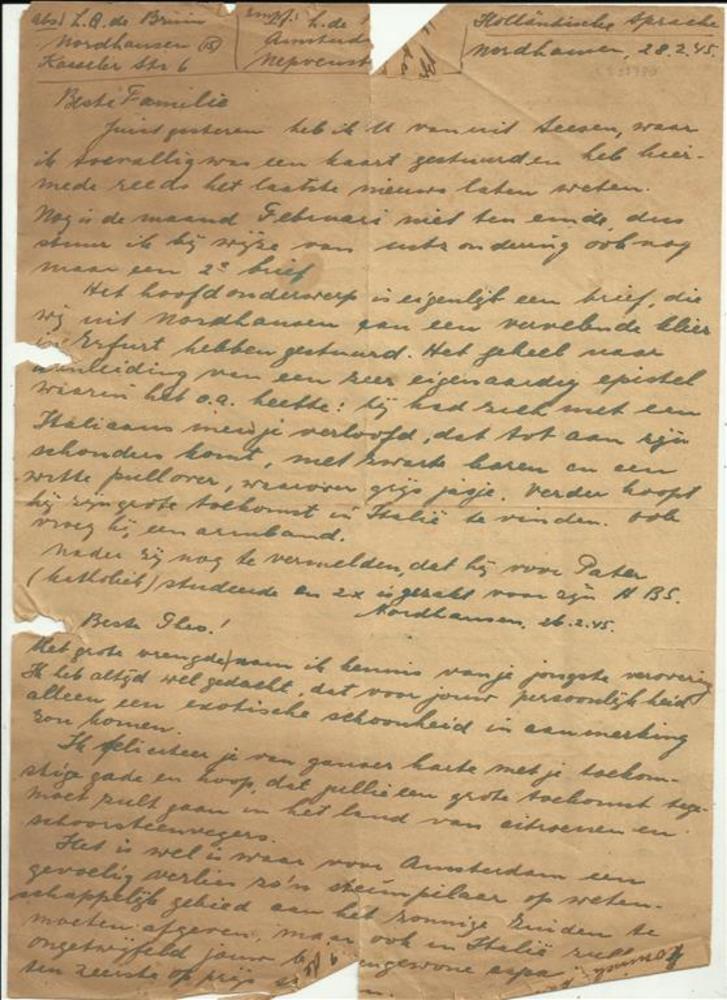 abs: L.A. de Bruin
Nordhausen (15)
Kasseler Str 6
L. de
Amsterd
Nepveust
Holländische Sprache
Nordhausen, 28.2.45.
Beste Familie
Juist gisteren heb ik U vanuit Seesen, waar
ik toevallig was een kaart gestuurd en heb hier-
mede reeds het laatste nieuws laten weten.
Nog is de maand Februari niet ten einde, dus
stuur ik bij wijze van uitzondering ook nog
maar een 2e brief
Het hoofdonderwerp is eigenlijk een brief, die
wij uit Nordhausen aan een vervelende klier
in Erfurt hebben gestuurd. Het geheel naar
aanleiding van een zeer eigenaardig epistel
waarin het o.a. heette: hij had zich met een
Italiaans meisje verloofd, dat tot aan zijn
schouders komt, met zwarte haren en een
witte pullover, waarover grijs jasje. Verder hoopt
hij zijn grote toekomst in Italië te vinden. Ook
vroeg hij een armband.
Nader zij nog te vermelden, dat hij voor Pater
(katholiek) studeerde en 2x is gezakt voor zijn H BS.
Nordhausen, 26.2.45.
Beste Theo!
Met grote vreugde nam ik kennis van je jongste verovering
Ik heb altijd wel gedacht, dat voor jouw persoonlijkheid
alleen een exotische schoonheid in aanmerking
zou komen.
Ik feliciteer je van ganser harte met je toekom-
stige gade en hoop, dat jullie een grote toekomst tege-
moet zult gaan in het land van citroenen en
schoorsteenvegers.
Het is wel is waar voor Amsterdam een
gevoelig verlies zo'n steunpilaar op weten-
schappelijk gebied aan het zonnige Zuiden te
moeten afgeven, maar ook in Italië zull
ongetwijfeld jouw ongewone
ten zeerste op prijs